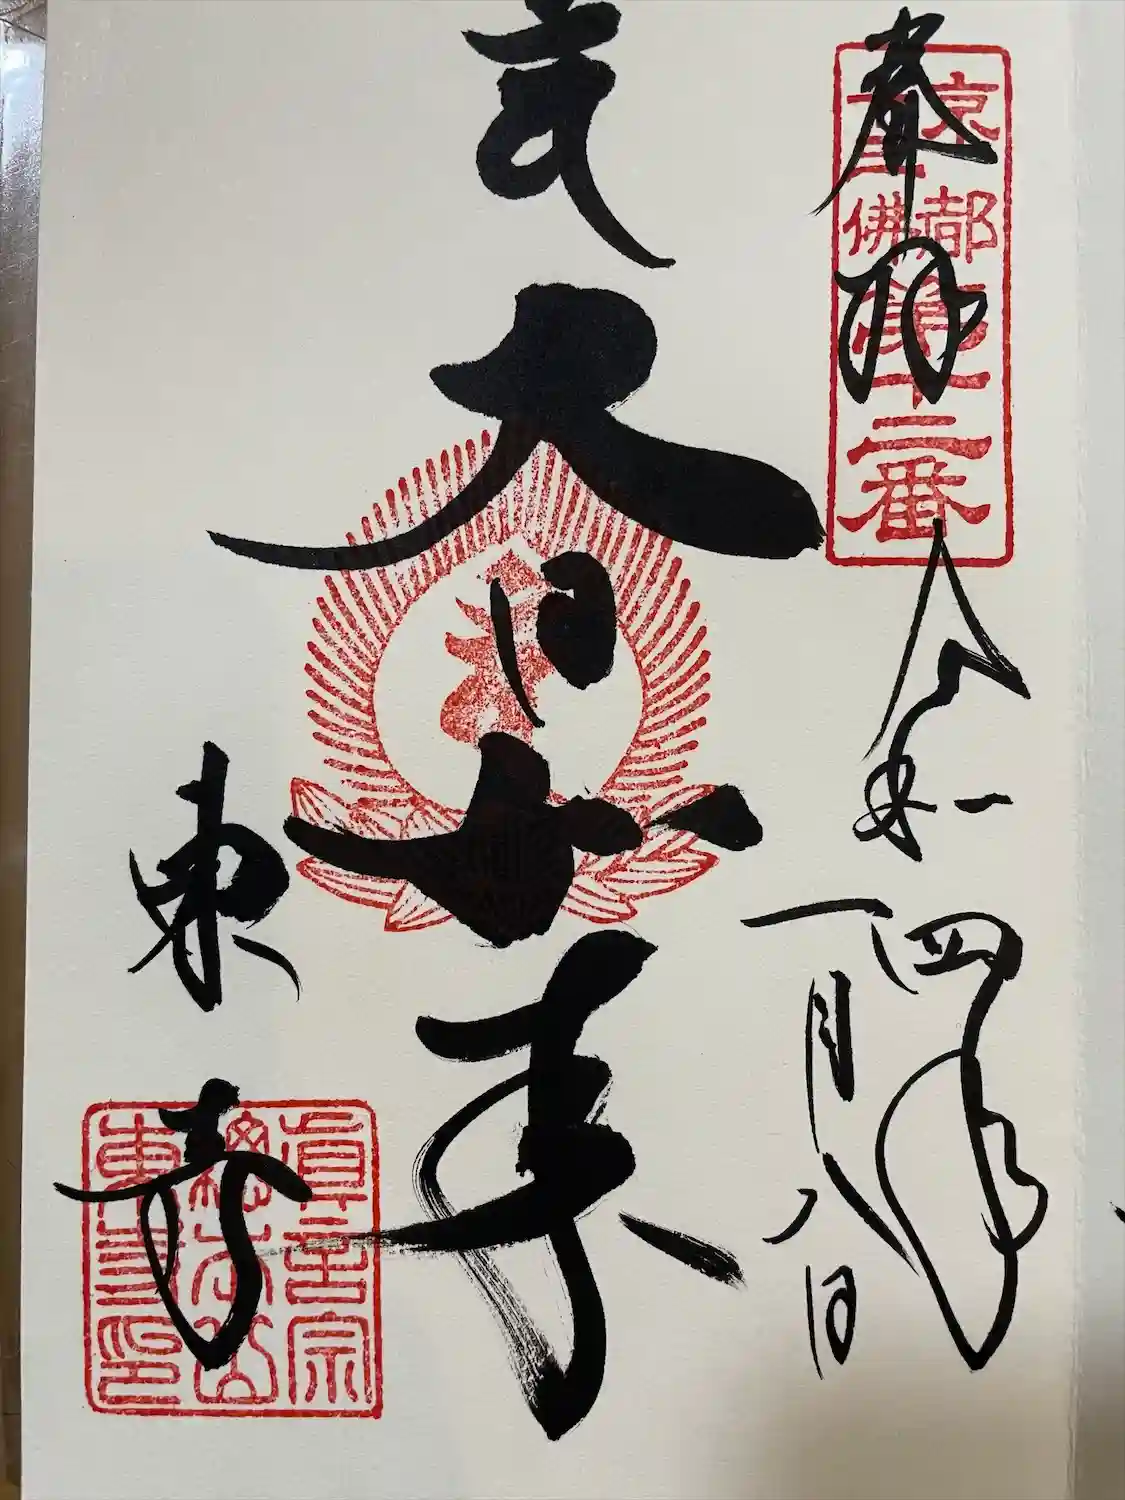 奉拝
京都
十三佛
第十二番
令和四年
一月八日
大日如来
東寺
眞言宗
總本山
東寺印